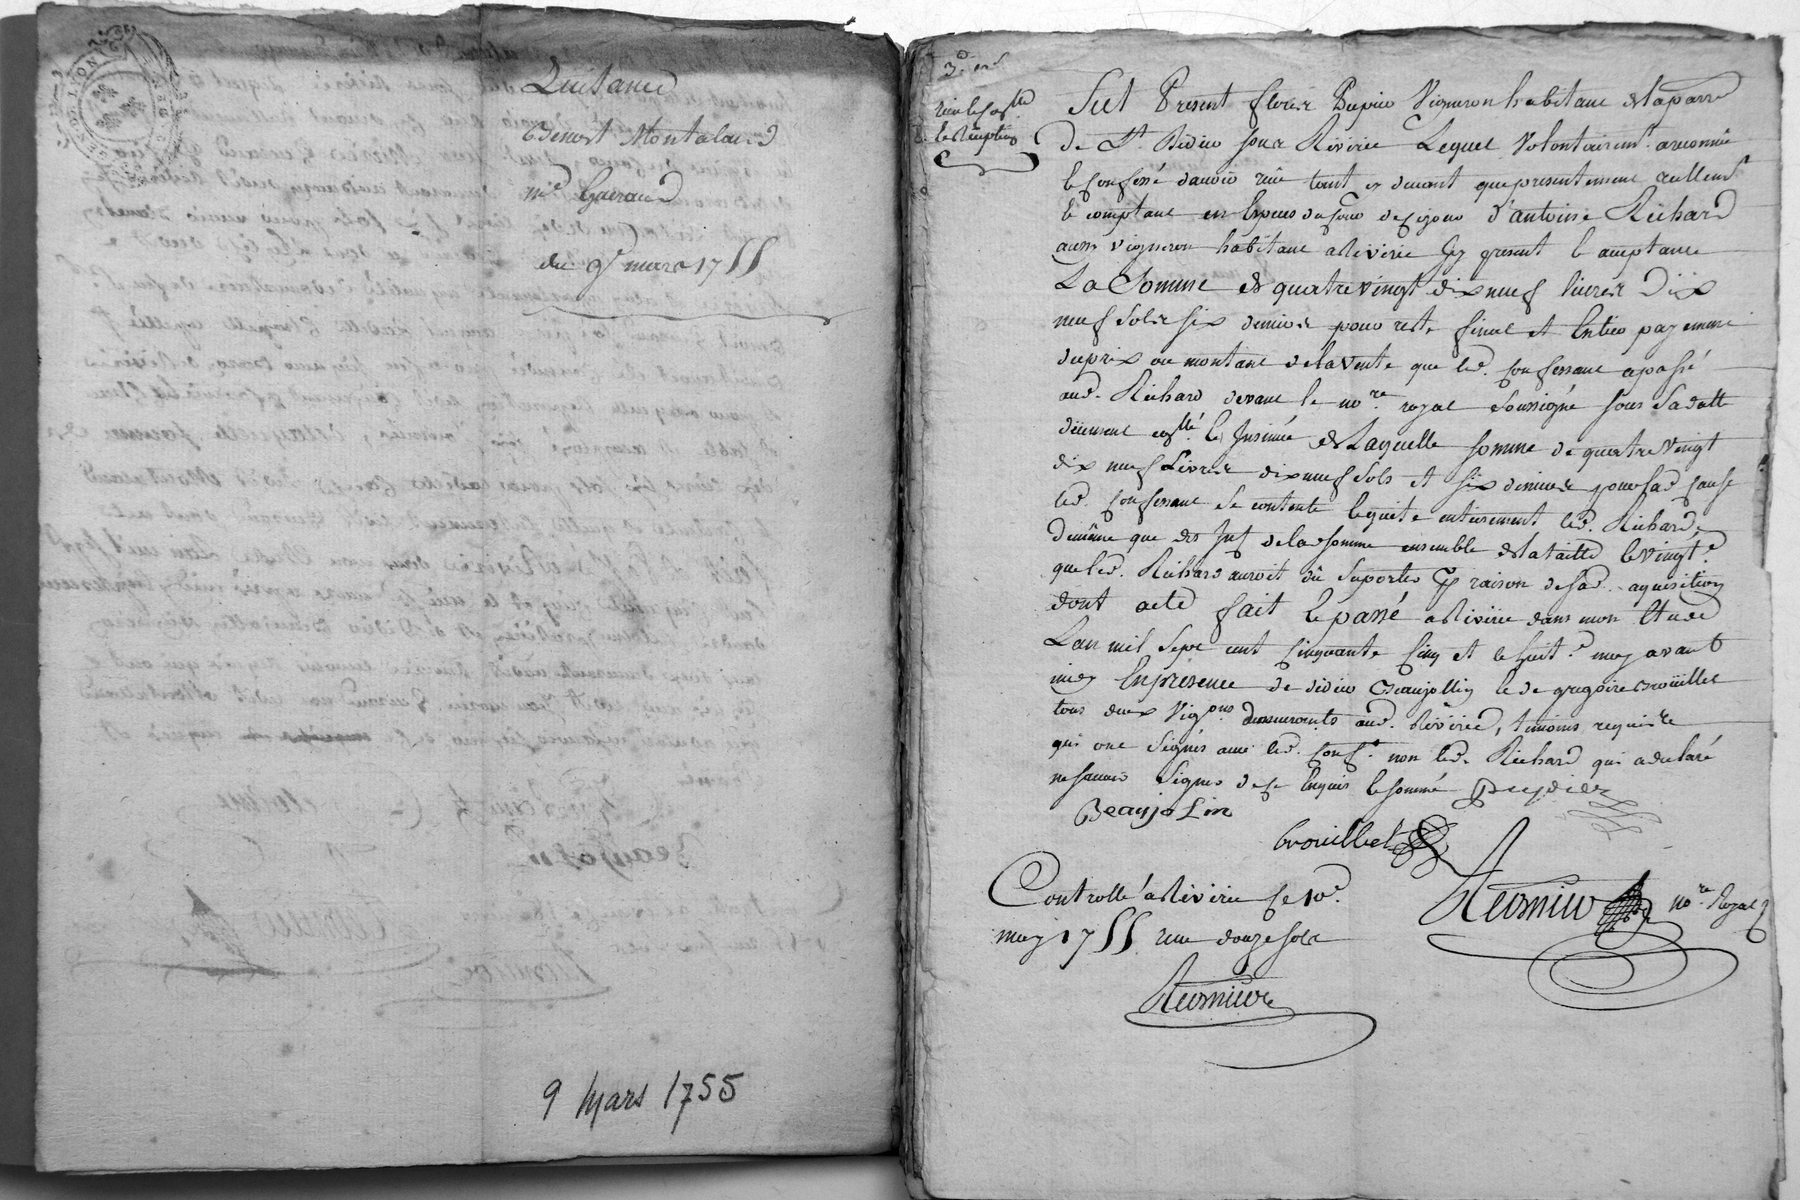 GEN. DE LYON
Quitance
Benoist Montaland
Me Guiraud
du 9e mars 1755
9 Mars 1755
fut Present fleurie Dupuis Vigneron habitant de la parre
de St. Didier sous Riverie Lequel Volontairemt. a reconnu
& confessé d'avoir reçu tant cy devant que presentement reellemt
& comptant en especes du cours de ce jour d'antoine Richard
aussy vigneron habitant a Riverie Icy present & acceptant
La Somme de quatre vingt dix neuf livres Dix
neuf sols six deniers pour reste final et Entier payement
du prix ou montant de la Vente que led. confessant a passé
aud. Richard devant le nore. royal soussigné sous sa datte
düement collé. & Insinué de Laquelle somme de quatre vingt
dix neuf Livres dix neuf sols et six deniers pour sad cause
led. confessant se contente & quitte entierement led. Richard
de même que des Int de la de somme ensemble de la taille & vingte.
que led. Richard auroit dû suporter pr raison de sad. aquisition
dont acte fait & passé a Riverie dans mon Etude
L'an mil sept cent cinquante cinq et le huite. may avant
midy En presence de didier Beaujollin & de gregoire Brouillet
tous deux Vigons demeurants aud. Riverie, temoins requis
qui ont signés avec led. conft. non led. Richard qui a declaré
ne savoir signer de ce Enquis & sommé
Beaujolin
brouillet
nore. Royal
Controllé a Riverie le 10e.
may 1755 reçu douze sols